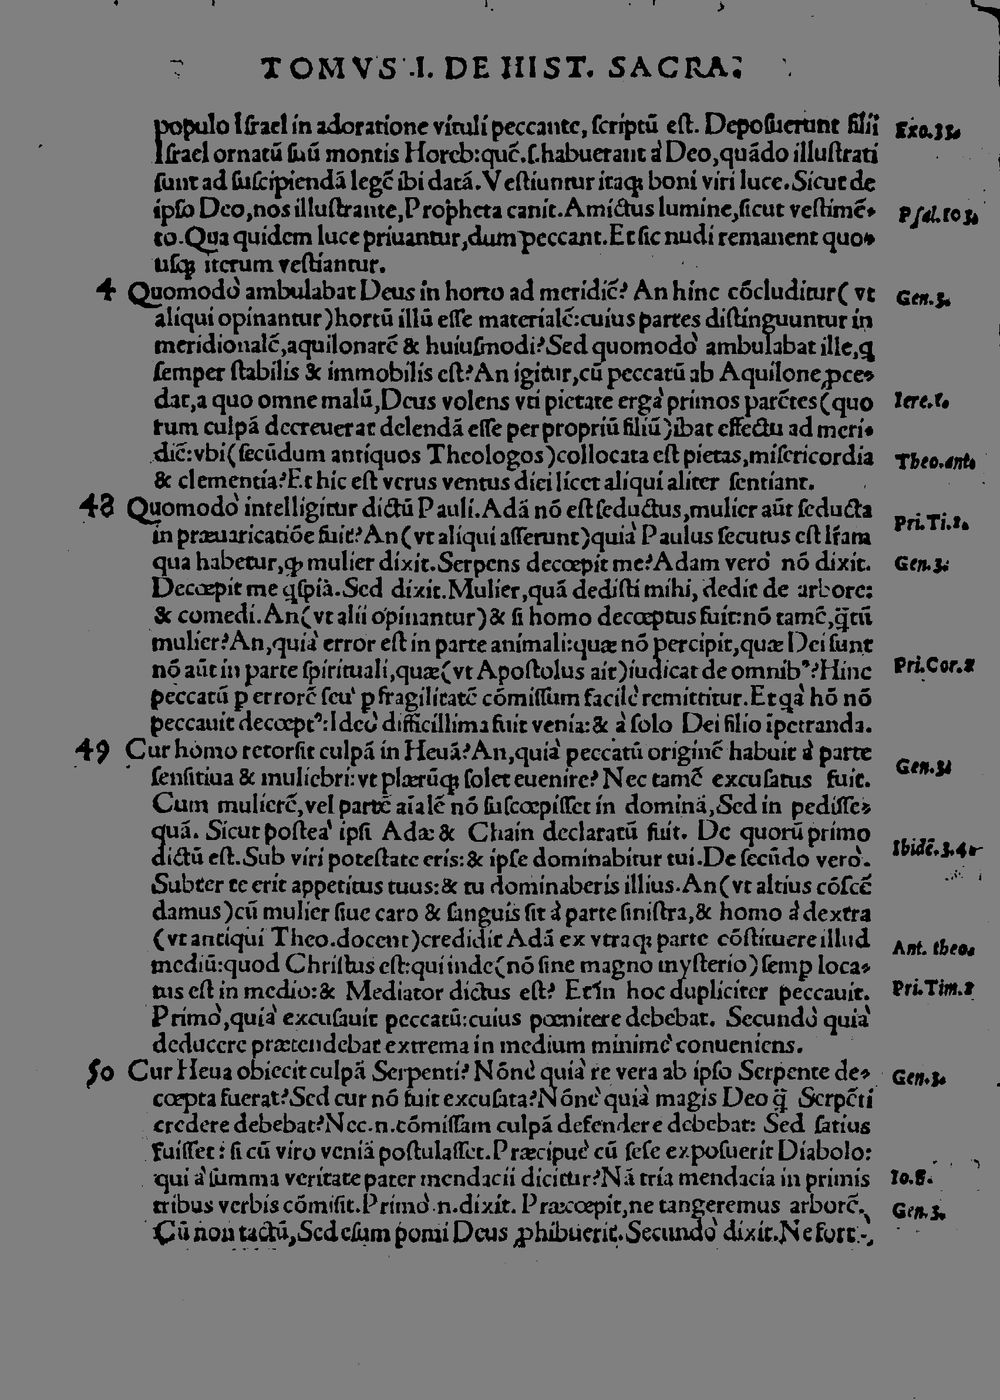 TOMVS .I. DE HIST. SACRA.
populo Israel in adoratione vituli peccante, scriptū est. Deposuerunt filii Exo.33.
Israel ornatū suū montis Horeb: quę̄.s.habuerant à Deo, quādo illustrati
sunt ad suscipiendā legē ibi datā. Vestiuntur itaq; boni viri luce. Sicut de
ipso Deo, nos illustrante, Propheta canit. Amictus lumine, sicut vestimē- Psal.103.
to. Qua quidem luce priuantur, dum peccant. Et sic nudi remanent quo-
usq; iterum vestiantur.
4 Quomodò ambulabat Deus in horto ad meridiē? An hinc cōcluditur ( vt Gen.3.
aliqui opinantur ) hortū illū esse materialē: cuius partes distinguuntur in
meridionalē, aquilonarē & huiusmodi? Sed quomodò ambulabat ille, q
semper stabilis & immobilis est? An igitur, cū peccatū ab Aquilone ꝓce-
dat, a quo omne malū, Deus volens vti pietate ergà primos parētes ( quo Iere.1.
rum culpā decreuerat delendā esse per propriū filiū ) ibat effectu ad meri-
diē: vbi ( secūdum antiquos Theologos ) collocata est pietas, misericordia Theo.ant.
& clementia? Et hic est verus ventus diei licet aliqui aliter sentiant.
48 Quomodò intelligitur dictū Pauli. Adā nō est seductus, mulier aūt seducta Pri.Ti.2.
in præuaricatiōe fuit? An ( vt aliqui asserunt ) quià Paulus secutus est lr̄am
qua habetur, ꝙ mulier dixit. Serpens decœpit me? Adam verò nō dixit. Gen.3.
Decœpit me q̄spiā. Sed dixit. Mulier, quā dedisti mihi, dedit de arbore:
& comedi. An ( vt alii opinantur ) & si homo decœptus fuit: nō tamē, q̄tū
mulier? An, quià error est in parte animali: quæ nō percipit, quæ Dei sunt
nō aūt in parte spirituali, quæ ( vt Apostolus ait ) iudicat de omnibꝰ? Hinc Pri.Cor.2
peccatū p errorē seu' p fragilitatē cōmissum facilè remittitur. Et qà hō nō
peccauit decœptꝰ: Ideò difficillima fuit venia: & à solo Dei filio īpetranda.
49 Cur homo retorsit culpā in Heuā? An, quià peccatū originē habuit à parte
sensitiua & muliebri: vt plærūq; solet euenire? Nec tamē excusatus fuit. Gen.3.
Cum mulierē, vel partē aīalē nō suscœpisset in dominā, Sed in pedisse-
quā. Sicut posteà ipsi Adæ & Chain declaratū fuit. De quorū primo
dictū est. Sub viri potestate eris: & ipse dominabitur tui. De secūdo verò. Ibidē.3.4.
Subter te erit appetitus tuus: & tu dominaberis illius. An ( vt altius cōscē
damus ) cū mulier siue caro & sanguis sit à parte sinistra, & homo à dextra
( vt antiqui Theo. docent ) credidit Adā ex vtraq; parte cōstituere illud Ant. theo.
mediū: quod Christus est: qui inde ( nō sine magno mysterio ) semp loca-
tus est in medio: & Mediator dictus est? Et in hoc dupliciter peccauit. Pri.Tim.2
Primò, quià excusauit peccatū: cuius pœnitere debebat. Secundò quià
deducere prætendebat extrema in medium minimè conueniens.
50 Cur Heua obiecit culpā Serpenti? Nōnè quià re vera ab ipso Serpente de- Gen.3.
cœpta fuerat? Sed cur nō fuit excusata? Nōnè quià magis Deo q̄̄ Serpēti
credere debebat? Nec.n. cōmissam culpā defendere debebat: Sed satius
fuisset: si cū viro veniā postulasset. Præcipuè cū sese exposuerit Diabolo:
qui à summa veritate pater mendacii dicitur? Nā tria mendacia in primis Io.8.
tribus verbis cōmisit. Primò.n. dixit. Præcœpit, ne tangeremus arborē. Gen.3.
Cū non tactū, Sed esum pomi Deus ꝓhibuerit. Secundò dixit. Ne fort-